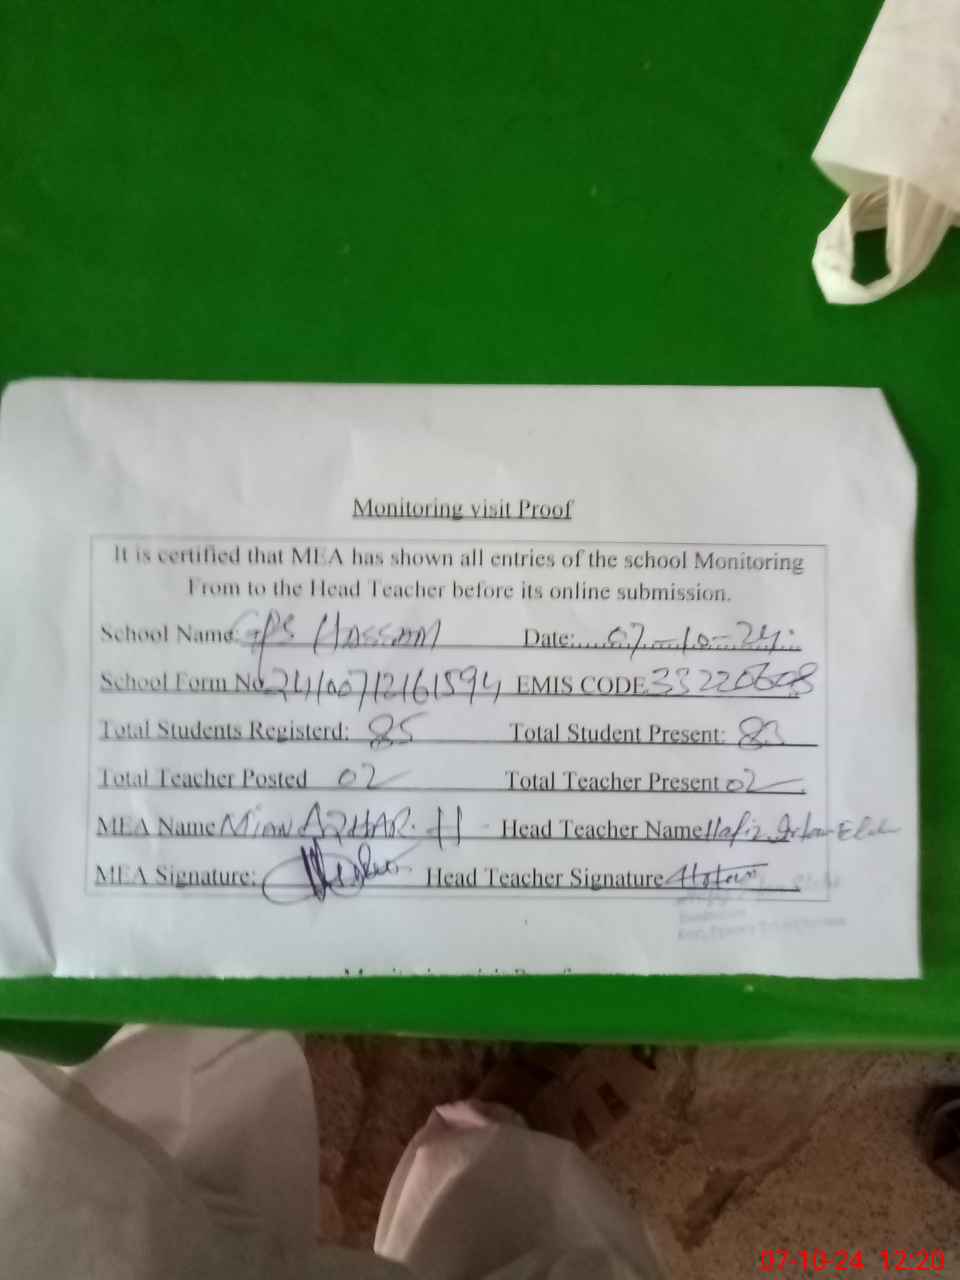 Monitoring visit Proof
It is certified that MEA has shown all entries of the school Monitoring
From to the Head Teacher before its online submission.
School Name: GPS HASSAM Date:....07-10-24.
School Form No. 24100712161594 EMIS CODE 33220608
Total Students Registerd: 85 Total Student Present: 83
Total Teacher Posted 02 Total Teacher Present 02
MEA Name Mian AZHAR. H Head Teacher Name Hafiz
MEA Signature: Head Teacher Signature
07-10-24 12:20